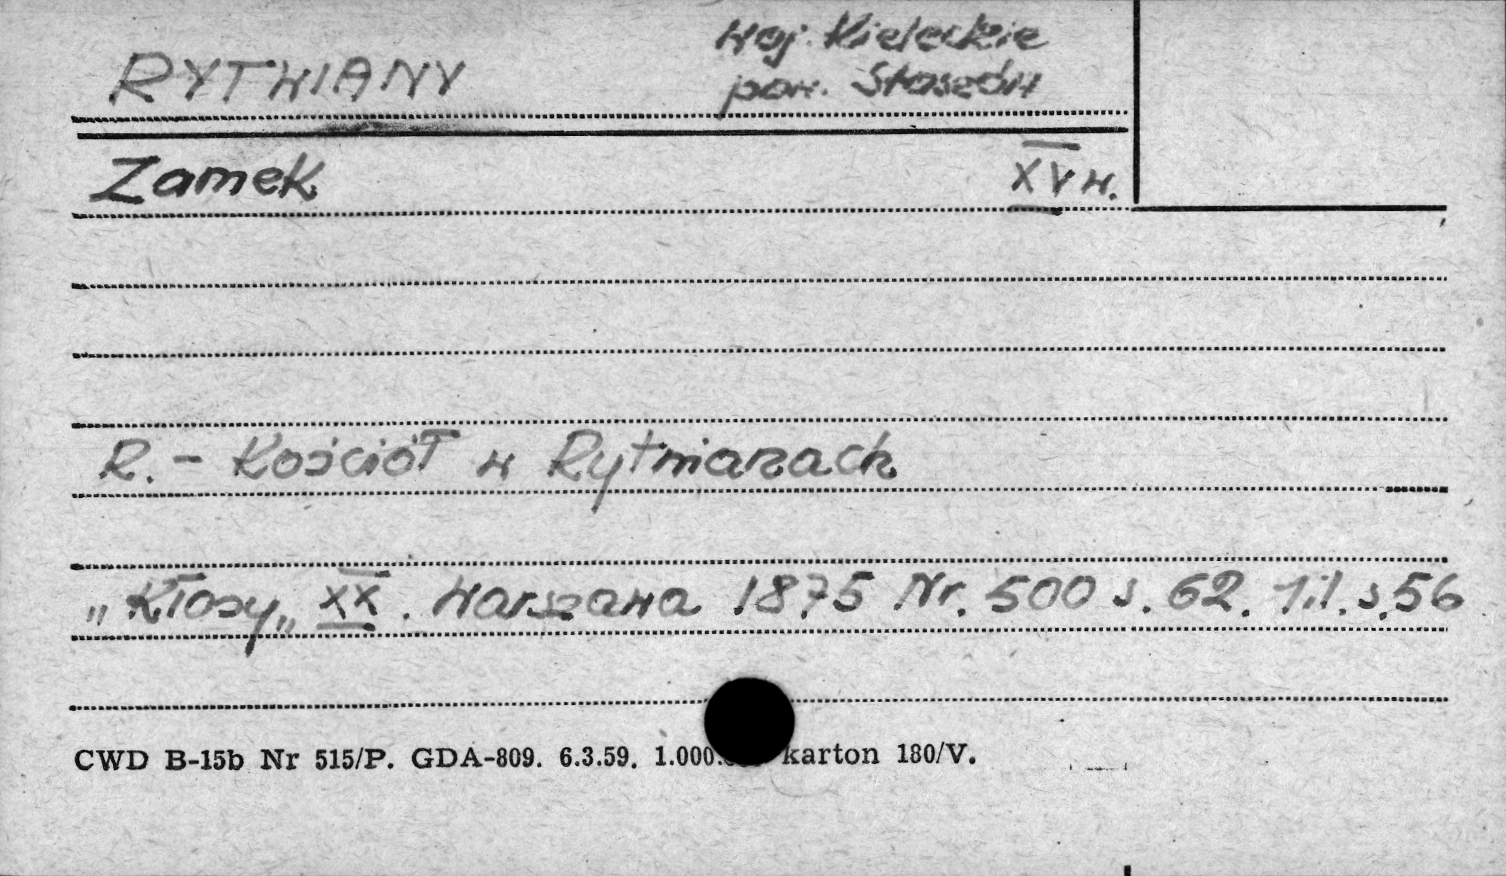 RYTWIANY
woj. Kieleckie
pow. Staszów
Zamek XV w.
R. - Kościół w Rytwianach
„Kłosy„ XX. Warszawa 1875 Nr. 500 s. 62. 1 il. s. 56
CWD B-15b Nr 515/P. GDA-809. 6.3.59. karton 180/V.